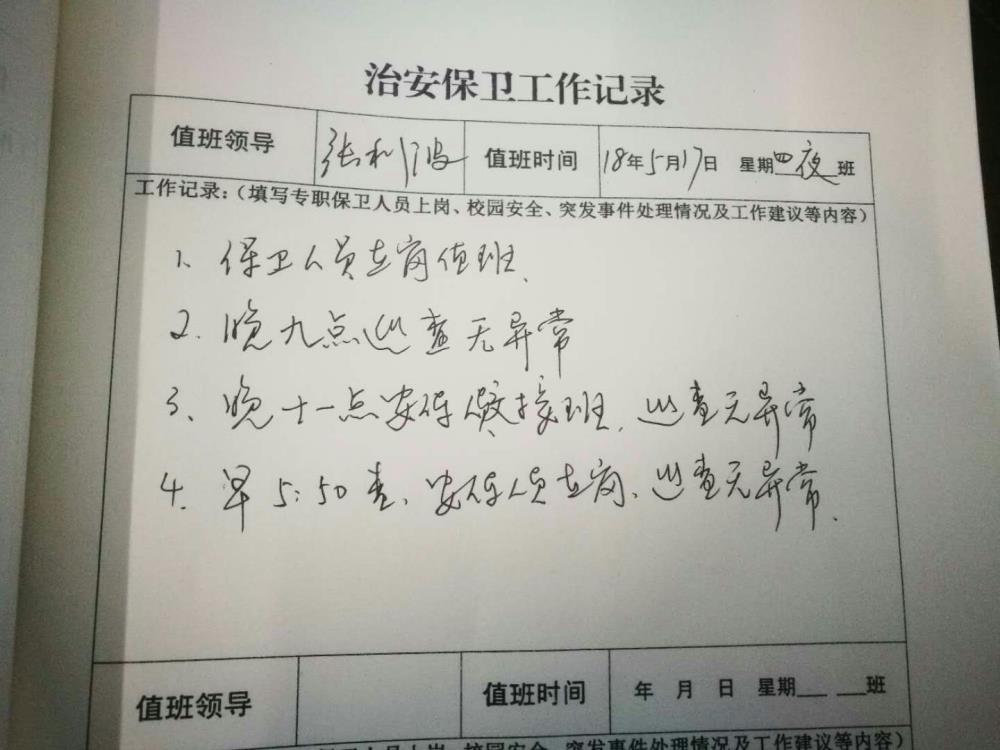 治安保卫工作记录
值班领导 张利波 值班时间 18年5月17日 星期四夜班
工作记录:(填写专职保卫人员上岗、校园安全、突发事件处理情况及工作建议等内容)
1、保卫人员在岗值班.
2.晚九点巡查无异常
3、晚十一点安保人员交接班.巡查无异常
4.早5:50查、安保人员在岗、巡查无异常.
值班领导 值班时间 年 月 日 星期___ ___班
卫人员上岗、校园安全、突发事件处理情况及工作建议等内容)